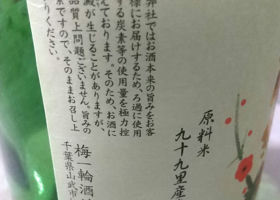 原料米
九十九里産
弊社ではお酒本来の旨みをお客
様にお届けするため、ろ過に使用
する炭素等の使用量を極力控
えております。そのため、お酒に
澱が生じることがありますが、
品質上問題ございません。旨みの
素ですので、そのままお召し上
りください。
梅一輪酒
千葉県山武市